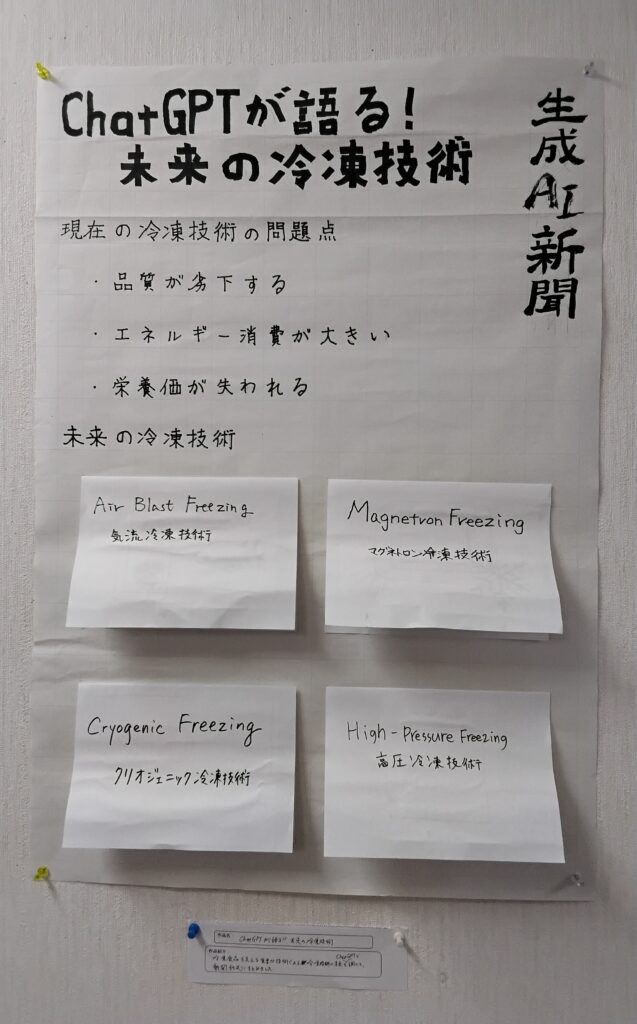 生成AI新聞
ChatGPTが語る!
未来の冷凍技術
現在の冷凍技術の問題点
・品質が劣下する
・エネルギー消費が大きい
・栄養価が失われる
未来の冷凍技術
Air Blast Freezing
気流冷凍技術
Magnetron Freezing
マグネトロン冷凍技術
Cryogenic Freezing
クリオジェニック冷凍技術
High-Pressure Freezing
高圧冷凍技術
作品名
ChatGPTが語る!! 未来の冷凍技術
作品紹介
ChatGPTに
新聞形式にまとめました